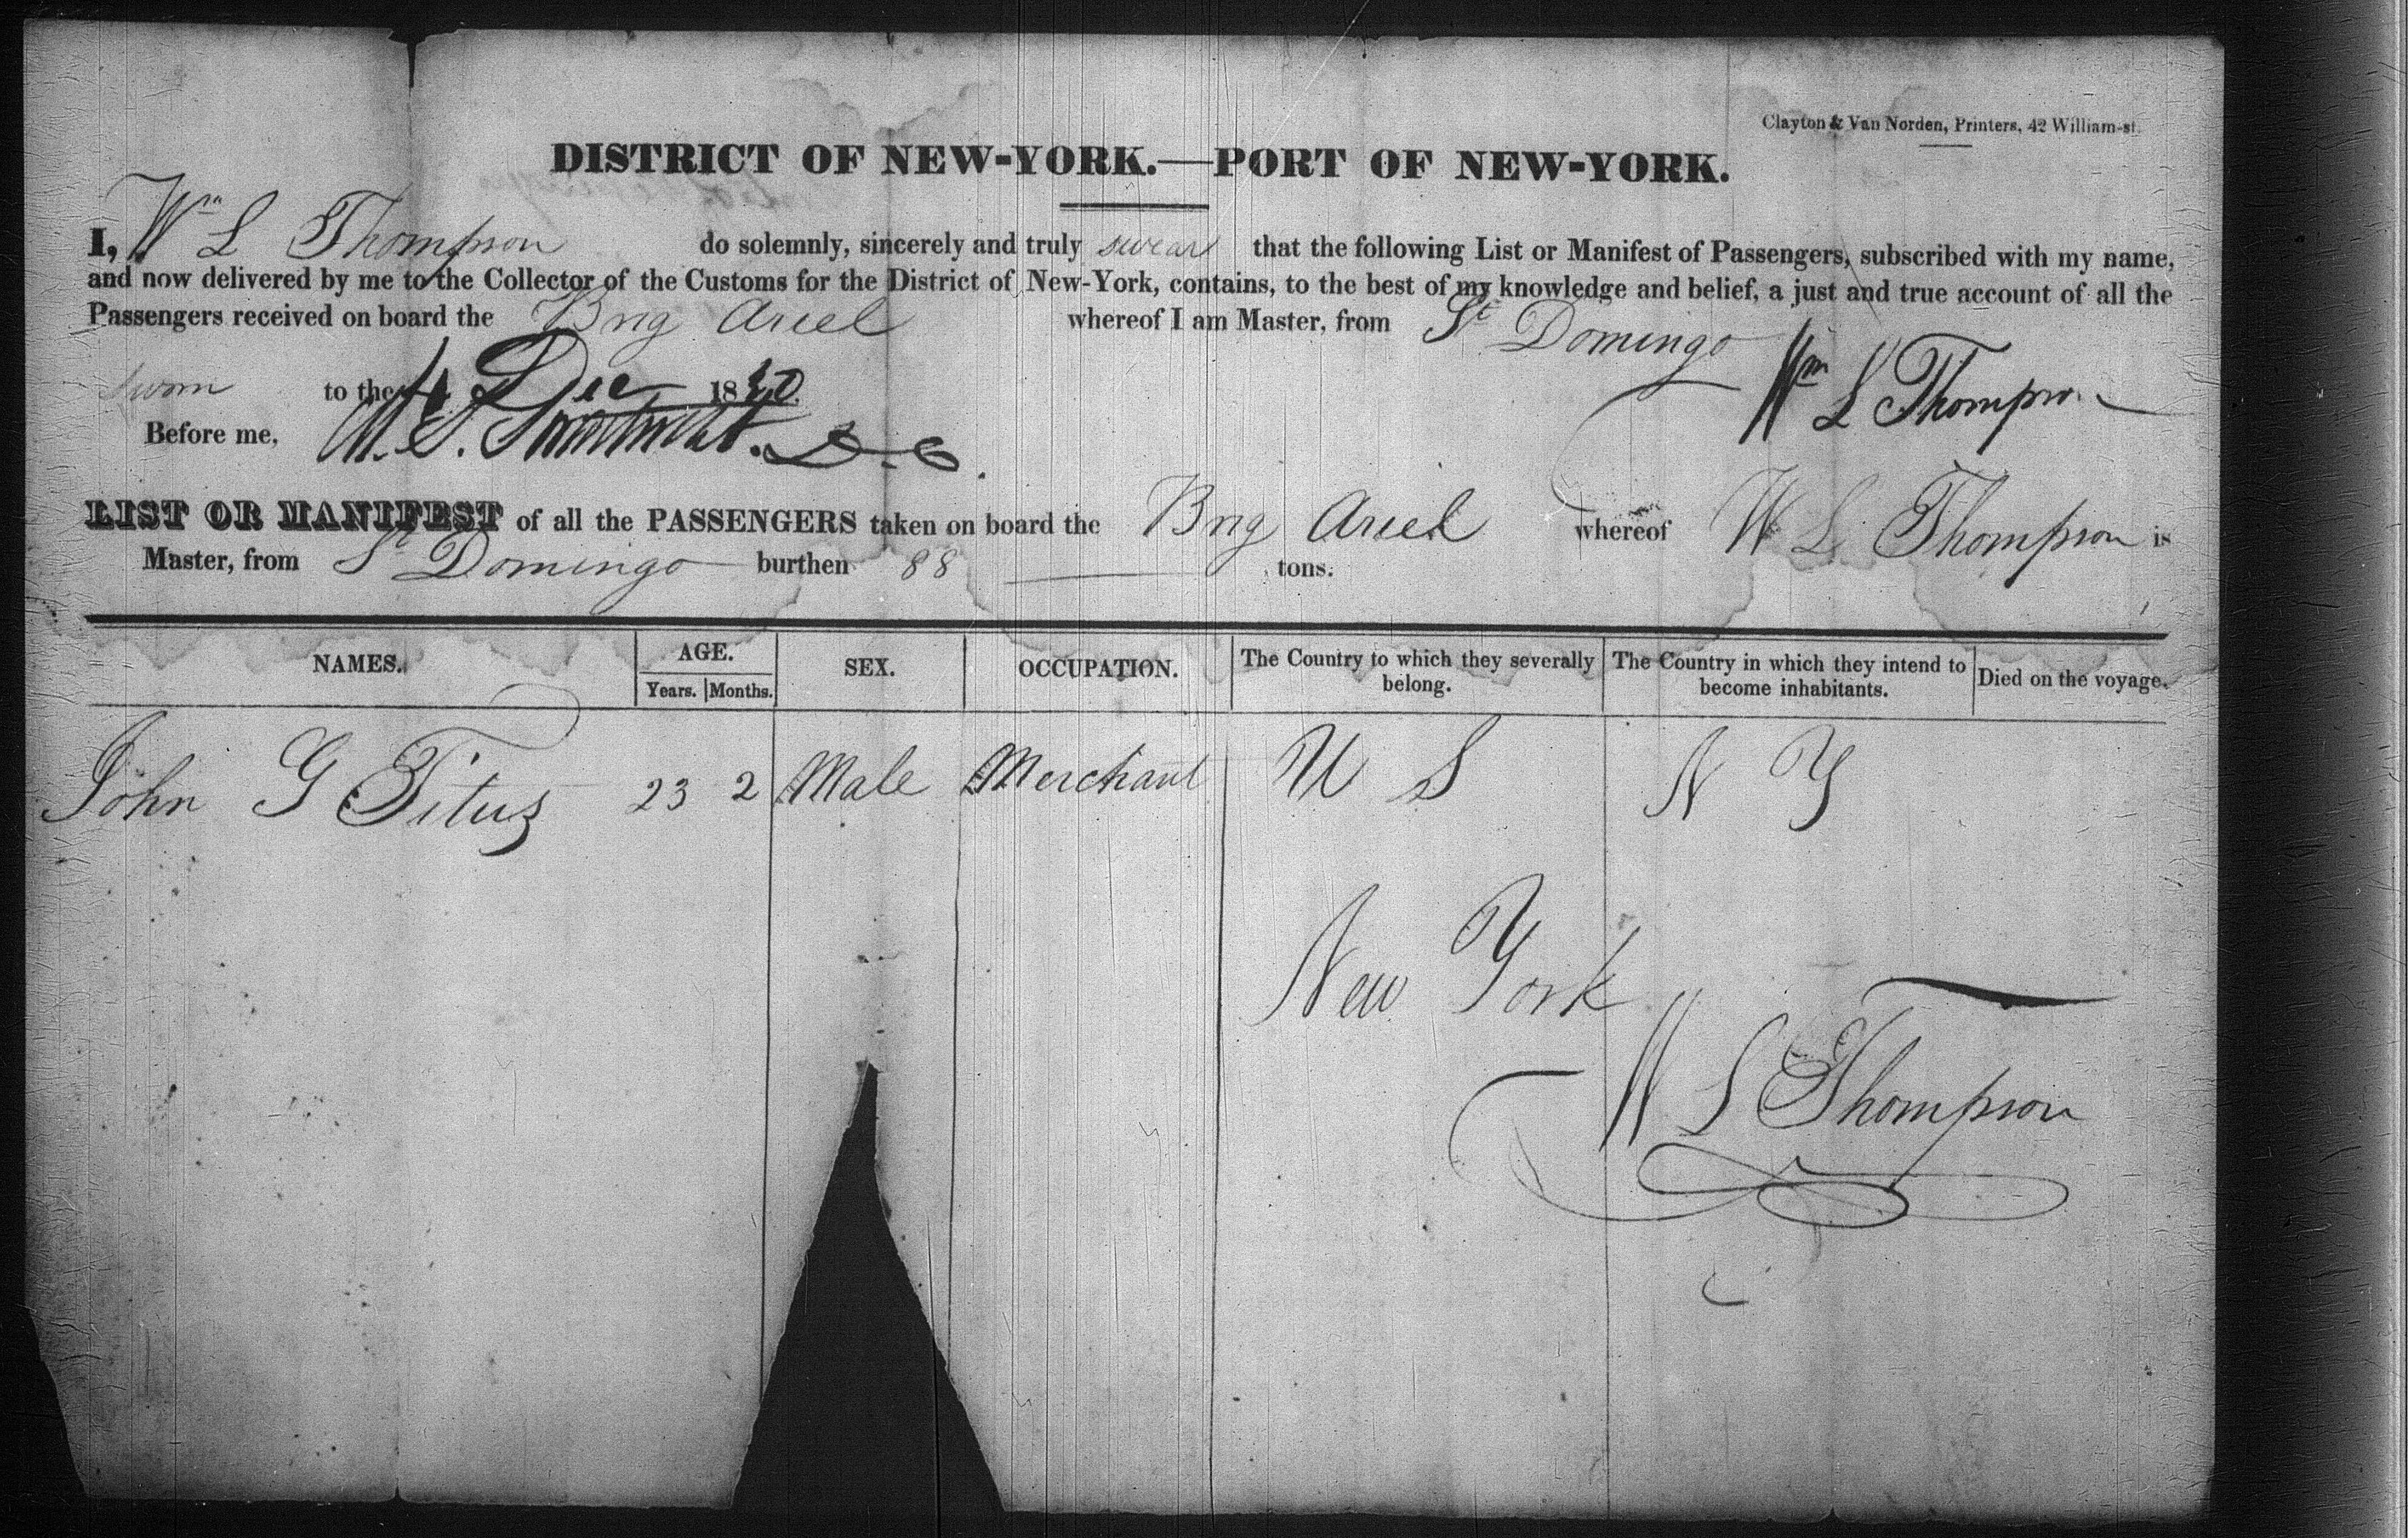 Clayton & Van Norden, Printers, 42 William-st.
DISTRICT OF NEW-YORK.—PORT OF NEW-YORK.
I, Wm L Thompson do solemnly, sincerely and truly swear that the following List or Manifest of Passengers, subscribed with my name,
and now delivered by me to the Collector of the Customs for the District of New-York, contains, to the best of my knowledge and belief, a just and true account of all the
Passengers received on board the Brig Ariel whereof I am Master, from St Domingo
sworn to the 4 Dec 1830.
Wm L Thompson
Before me,
LIST OR MANIFEST of all the PASSENGERS taken on board the Brig Ariel whereof W L Thompson is
Master, from St Domingo burthen 88 tons.
NAMES. AGE. Years. Months. SEX. OCCUPATION. The Country to which they severally belong. The Country in which they intend to become inhabitants. Died on the voyage.
John G Titus 23 2 Male Merchant U S N Y
New York
W L Thompson